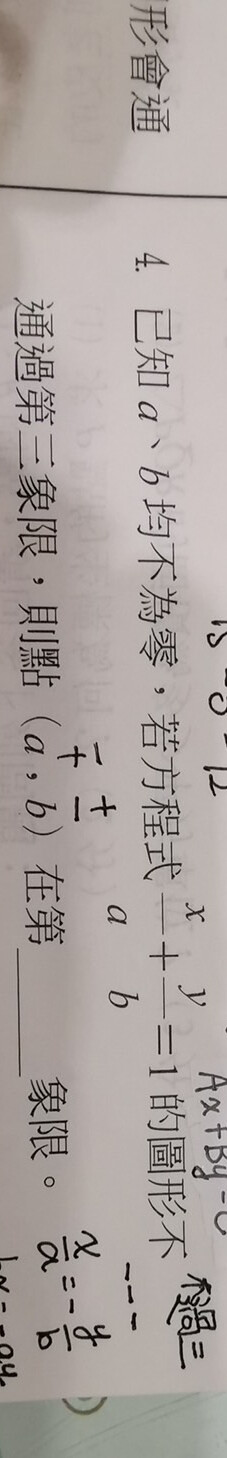 形會通
4. 已知 a、b 均不為零，若方程式 x/a + y/b = 1 的圖形不
通過第三象限，則點 (a，b) 在第______象限。
- +
+ -
Ax+By=C
- - -
x/a = - y/b